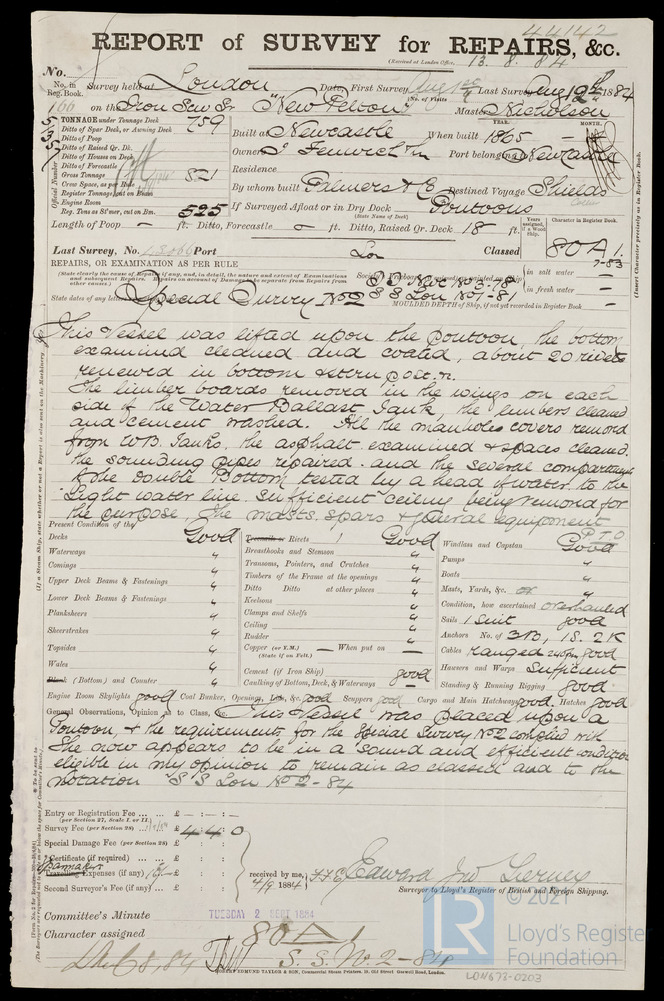 44142
REPORT of SURVEY for REPAIRS, &c.
(Received at London Office, 13. 8. 84
No.
No. in Reg. Book. Survey held at London Date, First Survey Aug 1st Last Survey Aug 12th 1884
(No. of Visits 4)
166 on the Iron Scw Sr "New Pelton" Master Nicholson
TONNAGE under Tonnage Deck 759
YEAR. MONTH.
Ditto of Spar Deck, or Awning Deck
Built at Newcastle When built 1865 —
Ditto of Poop
Ditto of Raised Qr. Dk.
Owners J Fenwick & Sn Port belonging to Newcastle
Ditto of Houses on Deck
Ditto of Forecastle
Residence
Gross Tonnage 821
Cross Space, as per Rule
By whom built Palmers & Co Destined Voyage Shields
Register Tonnage cut on Beam
Engine Room
Collier
Reg. Tons as St'mer, cut on Bm. 525
If Surveyed Afloat or in Dry Dock Pontoons
(State Name of Dock)
Official Number
Length of Poop — ft. Ditto, Forecastle — ft. Ditto, Raised Qr. Deck 18 ft.
Years assigned, if a Wood Ship.
Character in Register Book.
Last Survey, No. Port Lon Classed
80A1.
7-83
REPAIRS, OR EXAMINATION AS PER RULE
(State clearly the cause of Repair if any, and, in detail, the nature and extent of Examinations and subsequent Repairs. Repairs on account of Damage to be separate from Repairs from other causes.)
SS Nwc No 3-78
in salt water —
State dates of any letters Special Survey No 2
S S Lon No 1-81
in fresh water —
MOULDED DEPTH of Ship, if not yet recorded in Register Book —
(Insert Character precisely as in Register Book.)
This Vessel was lifted upon the pontoon, the bottom
examined cleaned and coated, about 20 rivets
renewed in bottom & stern post &c.
The limber boards removed in the wings on each
side of the Water Ballast Tank, the limbers cleaned
and cement washed. All the manholes covers removd
from W.B. Tanks. the asphalt examined & spaces cleaned.
the sounding pipes repaired. and the several compartments
of the Double Bottom tested by a head of water to the
Light water line. sufficient ceiling being removd for
the purpose. The masts. spars & general equipment
P.T.O
Present Condition of the
Decks Good
Waterways "
Comings "
Upper Deck Beams & Fastenings "
Lower Deck Beams & Fastenings "
Planksheers "
Sheerstrakes "
Topsides "
Wales "
Plank (Bottom) and Counter "
Treenails or Rivets Good
Breasthooks and Stemson "
Transoms, Pointers, and Crutches "
Timbers of the Frame at the openings "
Ditto Ditto at other places "
Keelsons "
Clamps and Shelfs "
Ceiling "
Rudder "
Copper (or Y.M.) — When put on —
(State if on Felt.)
Cement (if Iron Ship) good
Caulking of Bottom, Deck, & Waterways — "
Windlass and Capstan Good
Pumps "
Boats "
Masts, Yards, &c. "
Condition, how ascertained overhauled
Sails 1 suit good
Anchors No. of 3B, 1S. 2K
Cables ranged 240 fms good
Hawsers and Warps Sufficient
Standing & Running Rigging good
Engine Room Skylights good Coal Bunker, Openings, Lids, &c. good Scuppers good Cargo and Main Hatchways good. Hatches good
General Observations, Opinion as to Class, &c. This Vessel was placed upon a
Pontoon, & the requirements for the Special Survey No 2 complied with
She now appears to be in a sound and efficient condition
eligible in my opinion to remain as classed and to the
notation "S S Lon No 2-84
Entry or Registration Fee ... ... £ — : — : —
(per Section 27, Scale I. or II.)
Survey Fee (per Section 28) £ 4 : 4 : 0
Special Damage Fee (per Section 28) £ : :
Certificate (if required) ... £ : :
Travelling Expenses (if any) £ : :
Second Surveyor's Fee (if any) £ : :
received by me,
4/9 1884
Edward Jno Tierney
Surveyor to Lloyd's Register of British and Foreign Shipping.
Committee's Minute TUESDAY 2 SEPT 1884
Character assigned 80A1
S. S. No. 2-84
EDMUND TAYLOR & SON, Commercial Steam Printers, 15, Old Street Goswell Road, London.
© 2021
LR
Lloyd's Register
Foundation
LON678-0203